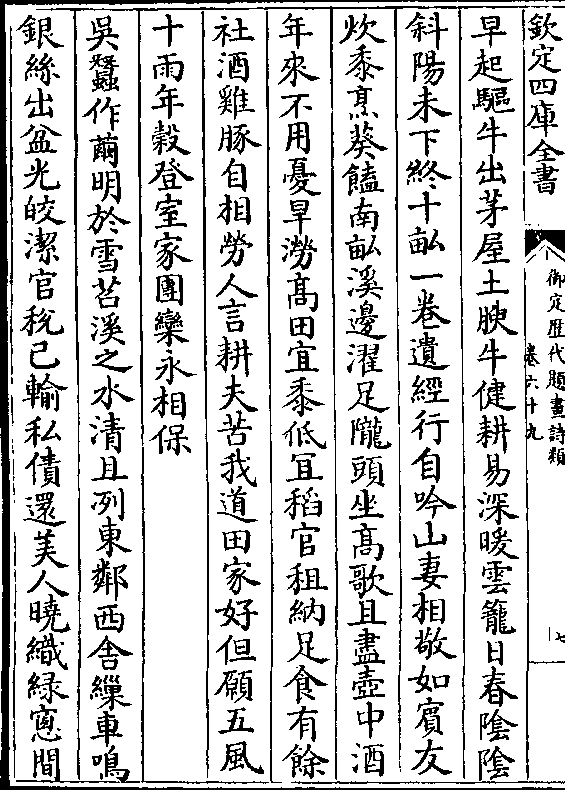 欽定四庫全書
御定歴代題畫詩類
卷六十九
七
早起驅牛出茅屋土腴牛健耕易深暖雲籠日春陰陰
斜陽未下終十畝一卷遺經行自吟山妻相敬如賓友
炊黍烹葵饁南畝溪邊濯足隴頭坐髙歌且盡壺中酒
年來不用憂旱澇髙田宜黍低宜稻官租納足食有餘
社酒雞豚自相勞人言耕夫苦我道田家好但願五風
十雨年穀登室家團欒永相保
吳蠶作繭明於雪苕溪之水清且冽東鄰西舍繅車鳴
銀絲出盆光皎潔官税已輸私債還美人曉織緑窻間